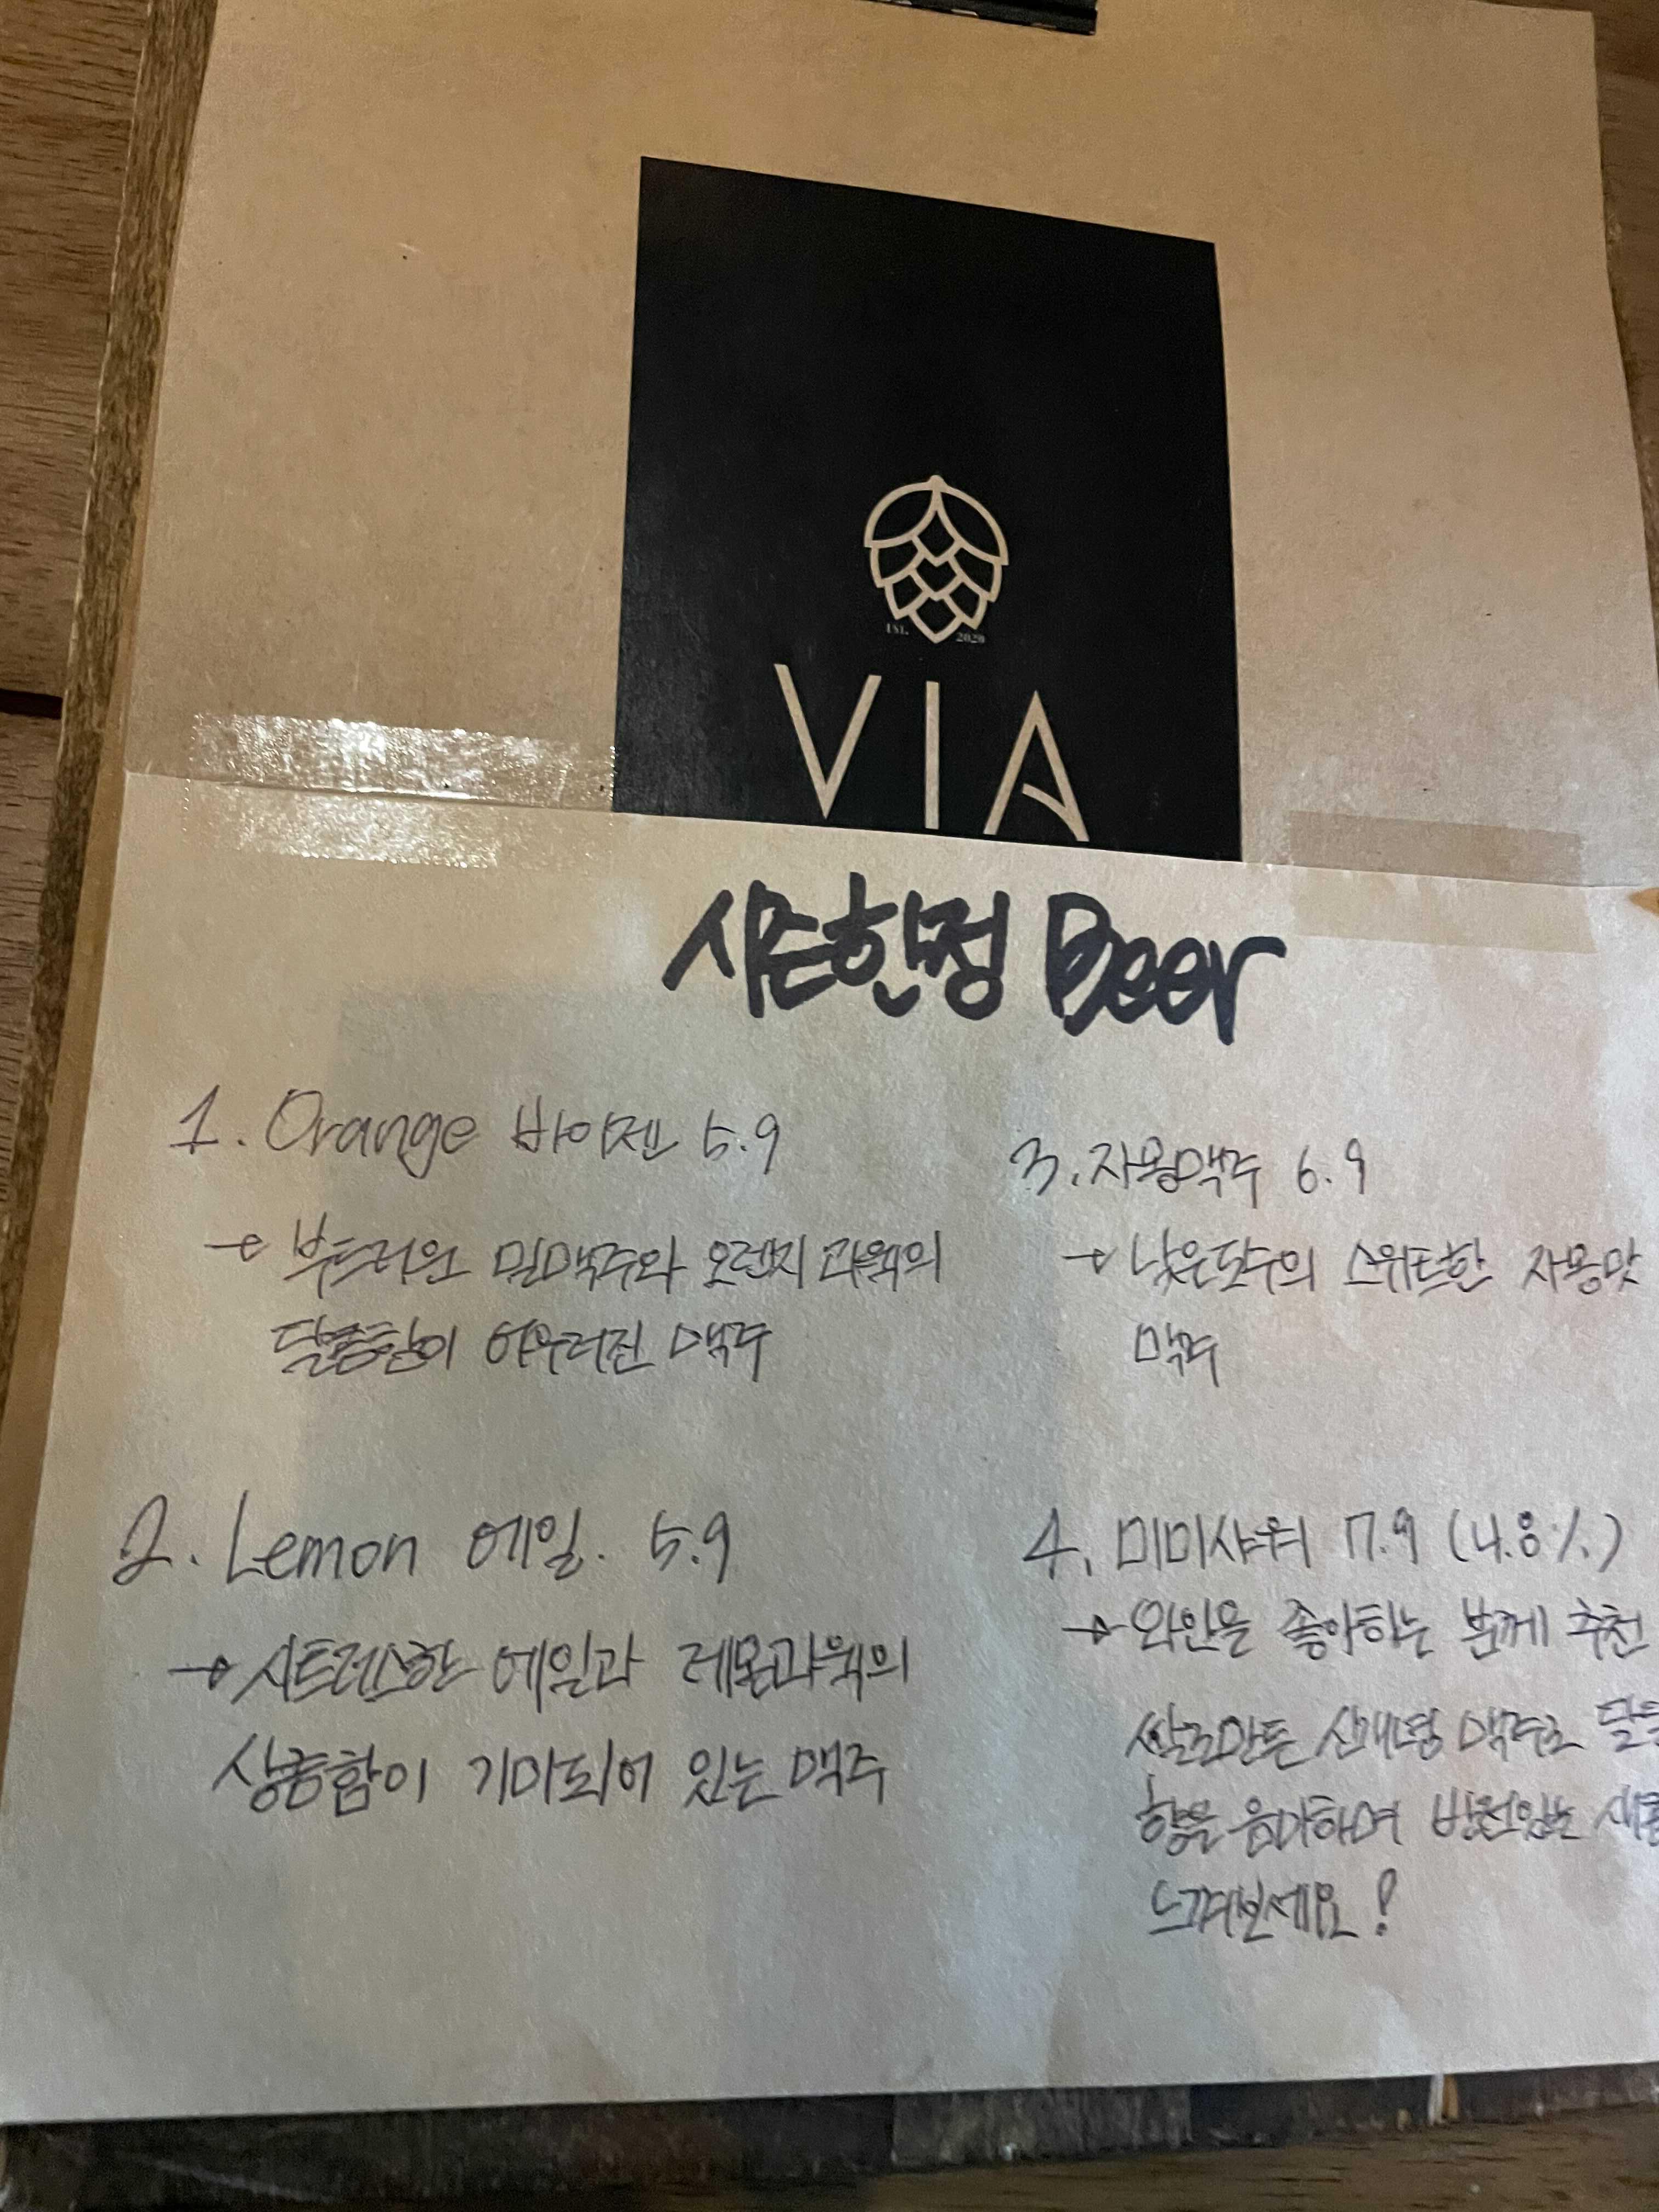 EST. 2020
VIA
시즌한정 Beer
1. Orange 바이젠 5.9
→ 부드러운 밀맥주와 오렌지과육의
달콤함이 어우러진 맥주
2. Lemon 에일. 5.9
→ 시트러스한 에일과 레몬과육의
상큼함이 가미되어 있는 맥주
3. 자몽맥주 6.9
→ 낮은도수의 스위트한 자몽맛
맥주
4. 미미사워 7.9 (4.8%)
→ 와인을 좋아하는 분께 추천
쌀로만든 신개념 맥주로
향을 음미하며 반전있는
느껴보세요!